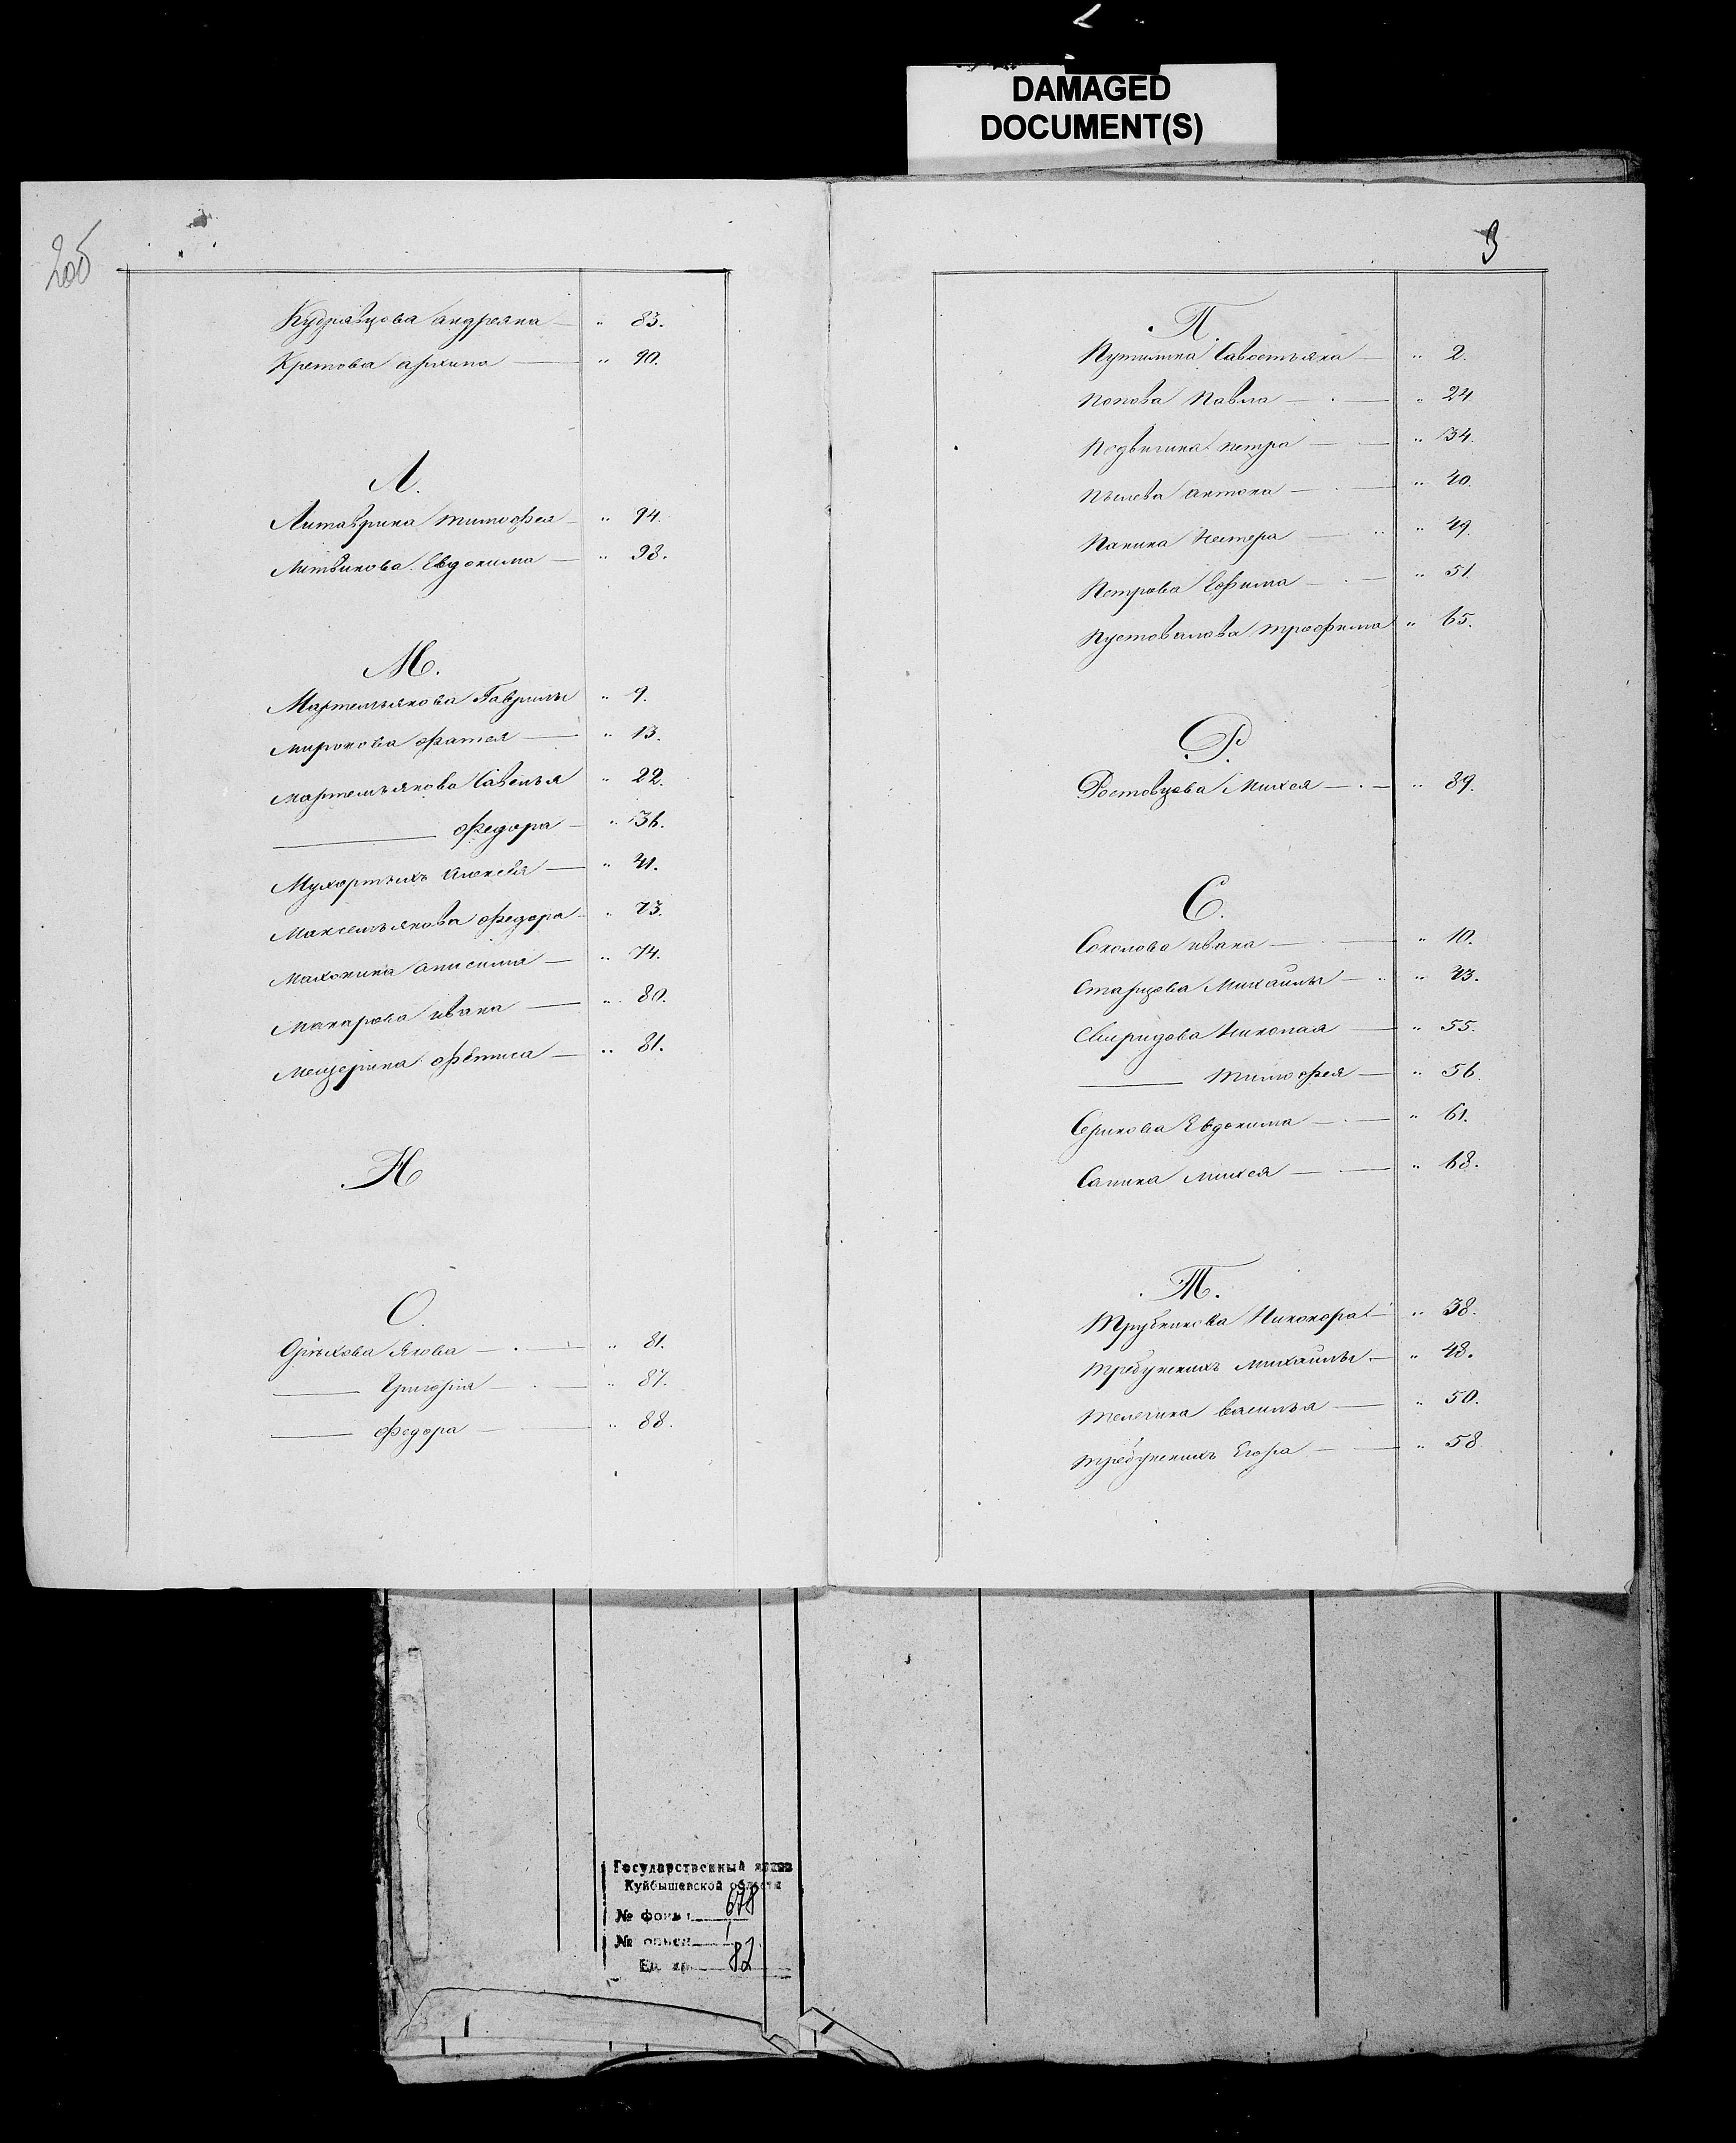 DAMAGED
DOCUMENT(S)
Кудрявцова Андреяна — „ 83.
Кретова Архипа — „ 90.
Л.
Литаврина Тимофея — „ 94.
Литвинова Евдокима — „ 98.
М.
Мартемьянова Гаврилы „ 9.
Миронова Фатея — „ 13.
Мартемьянова Савелья „ 22.
— Федора — „ 36.
Мухортыхъ Алексея — „ 41.
Максемьянова Федора „ 73.
Махонина Анисима — „ 74.
Макарова Ивана — „ 80.
Мещерина Фетиса — „ 81.
Н
О.
Орехова Якова — „ 81.
— Григорья — „ 87.
— Федора — „ 88.
3
П.
Путилина Савостьяна — „ 2.
Попова Павла — „ 24
Подвигина Петра — „ 34.
Пылева Антона — „ 40.
Панина Нестера — „ 49.
Петрова Ефима — „ 51.
Пустовалова Трофима „ 65.
Р.
Ростовцова Михея — „ 89.
С.
Соколова Ивана — „ 10.
Старцова Михаилы — „ 43.
Свиридова Николая — „ 55.
— Тимофея — „ 56.
Серикова Евдокима — „ 61.
Сапина Михея — „ 68.
Т.
Трубникова Никонора — „ 38.
Требунскихъ Михаилы — „ 48.
Телегина Василья — „ 50.
Требунскихъ Егора — „ 58
Государственный архив
Куйбышевской области
№ фонда 678
№ описи 1
Ед. хр. 82